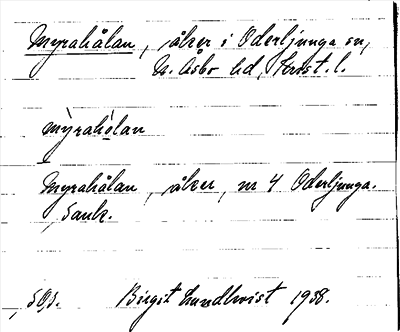 Myrahålan, åker i Oderljunga sn,
N. Åsbo hd, Krist. l.
mỳrahòlan
Myrahålan, åker, nr 4 Oderljunga.
, Sank.
, SOJ. Birgit Lundkvist 1938.